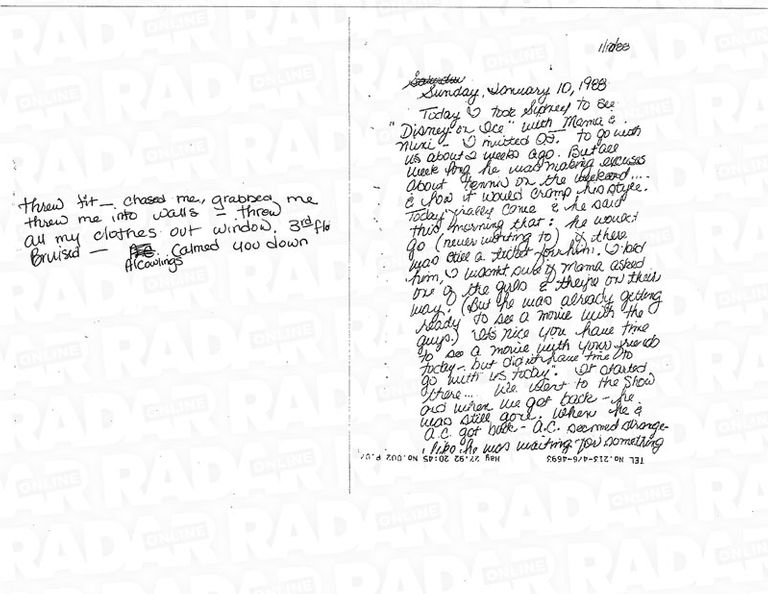 threw fit — chased me, grabbed me
threw me into walls — threw
all my clothes out window, 3rd flo
Bruised — calmed you down
Al Cowlings
1/10/88
Sunday, January 10, 1988
Today I took Sydney to see
"Disney on Ice" with Mama &
Mini — I invited O.J. to go with
us about 2 weeks ago. But all
week long he was making excuses
about Tennis on the weekend....
& how it would cramp his style.
Today finally came & he said
this morning that: he would
go (never wanting to) if there
was still a ticket for him. I told
him, I wasn't sure if Mama asked
one of the girls & they're on their
way. (But he was already getting
ready to see a movie with the
guys.) It's nice you have time
to see a movie with your friends
today — but didn't have time to
go with us today". It started
there... We went to the show
and when we got back — he
was still gone. When he &
A.C. got back — A.C. seemed strange-
like he was waiting for something
TEL No. 213-476-4693 May 27.92 20:45 No.002 P.0
RADAR
ONLINE